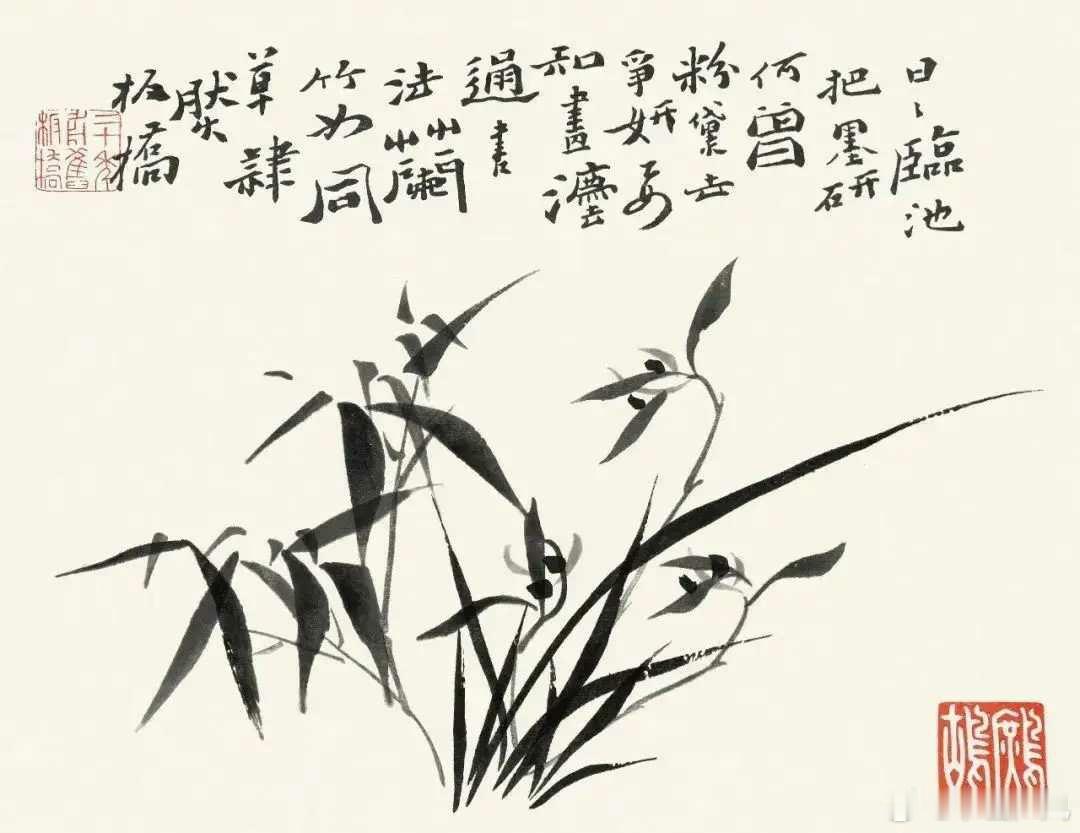 日〻臨池
把墨研
何曾
粉黛去
爭妍要
知畫灋
通書
法蘭
竹如同
草隸
然
板橋
鷓鴣